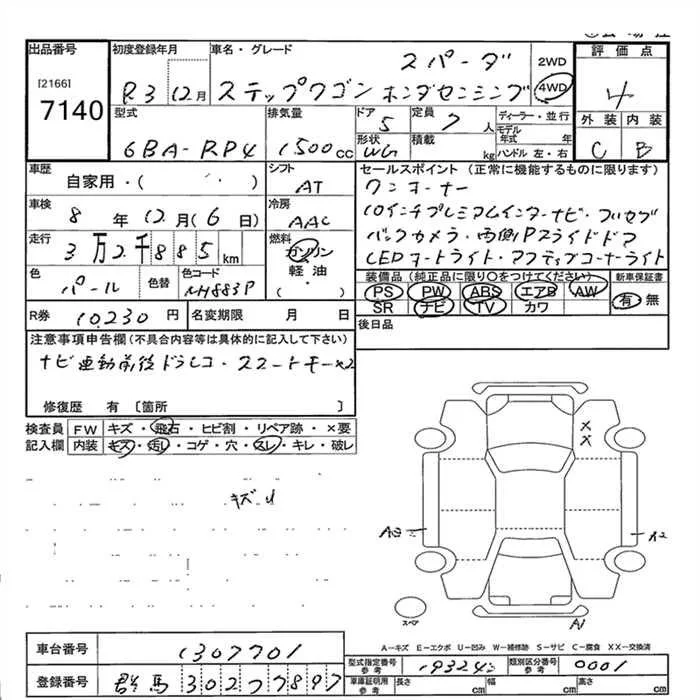 出品番号
[2166]
7140
初度登録年月
R3 12月
車名・グレード
スパーダ
ステップワゴン ホンダセンシング
2WD
4WD
評価点
4
外装 内装
C B
型式
6BA-RP4
排気量
1500cc
ドア
5
定員
7人
形状
WG
積載
kg
ディーラー・並行
モデル
年式 年
ハンドル 左・右
車歴
自家用・( )
シフト
AT
セールスポイント (正常に機能するものに限ります)
ワンオーナー
10インチプレミアムインターナビ・フルセグ
バックカメラ・両側Pスライドドア
LEDオートライト・アクティブコーナーライト
車検
8年12月(6日)
冷房
AAC
走行
3万2千885km
燃料
ガソリン
軽油
( )
色
パール
色替
色コード
NH883P
装備品 (純正品に限り○をつけてください)
PS PW ABS エアB AW
SR ナビ TV カワ
新車保証書
有 無
R券 10,230円
名変期限 月 日
後日品
注意事項申告欄(不具合内容等は具体的に記入して下さい)
ナビ連動前後ドラレコ・スマートキー×2
修復歴 有 〔箇所 〕
検査員
記入欄
FW キズ・飛石・ヒビ割・リペア跡・×要
内装 キズ・汚レ・コゲ・穴・スレ・キレ・破レ
X
X
A3
A2
スペア
A1
A-キズ E-エクボ U-凹み W-補修跡 S-サビ C-腐食 XX-交換済
車台番号 1307701
登録番号 群馬 302 7897
型式指定番号
参考
19324
類別区分番号
参考
0001
車庫証明用
参考
長さ cm 幅 cm 高さ cm